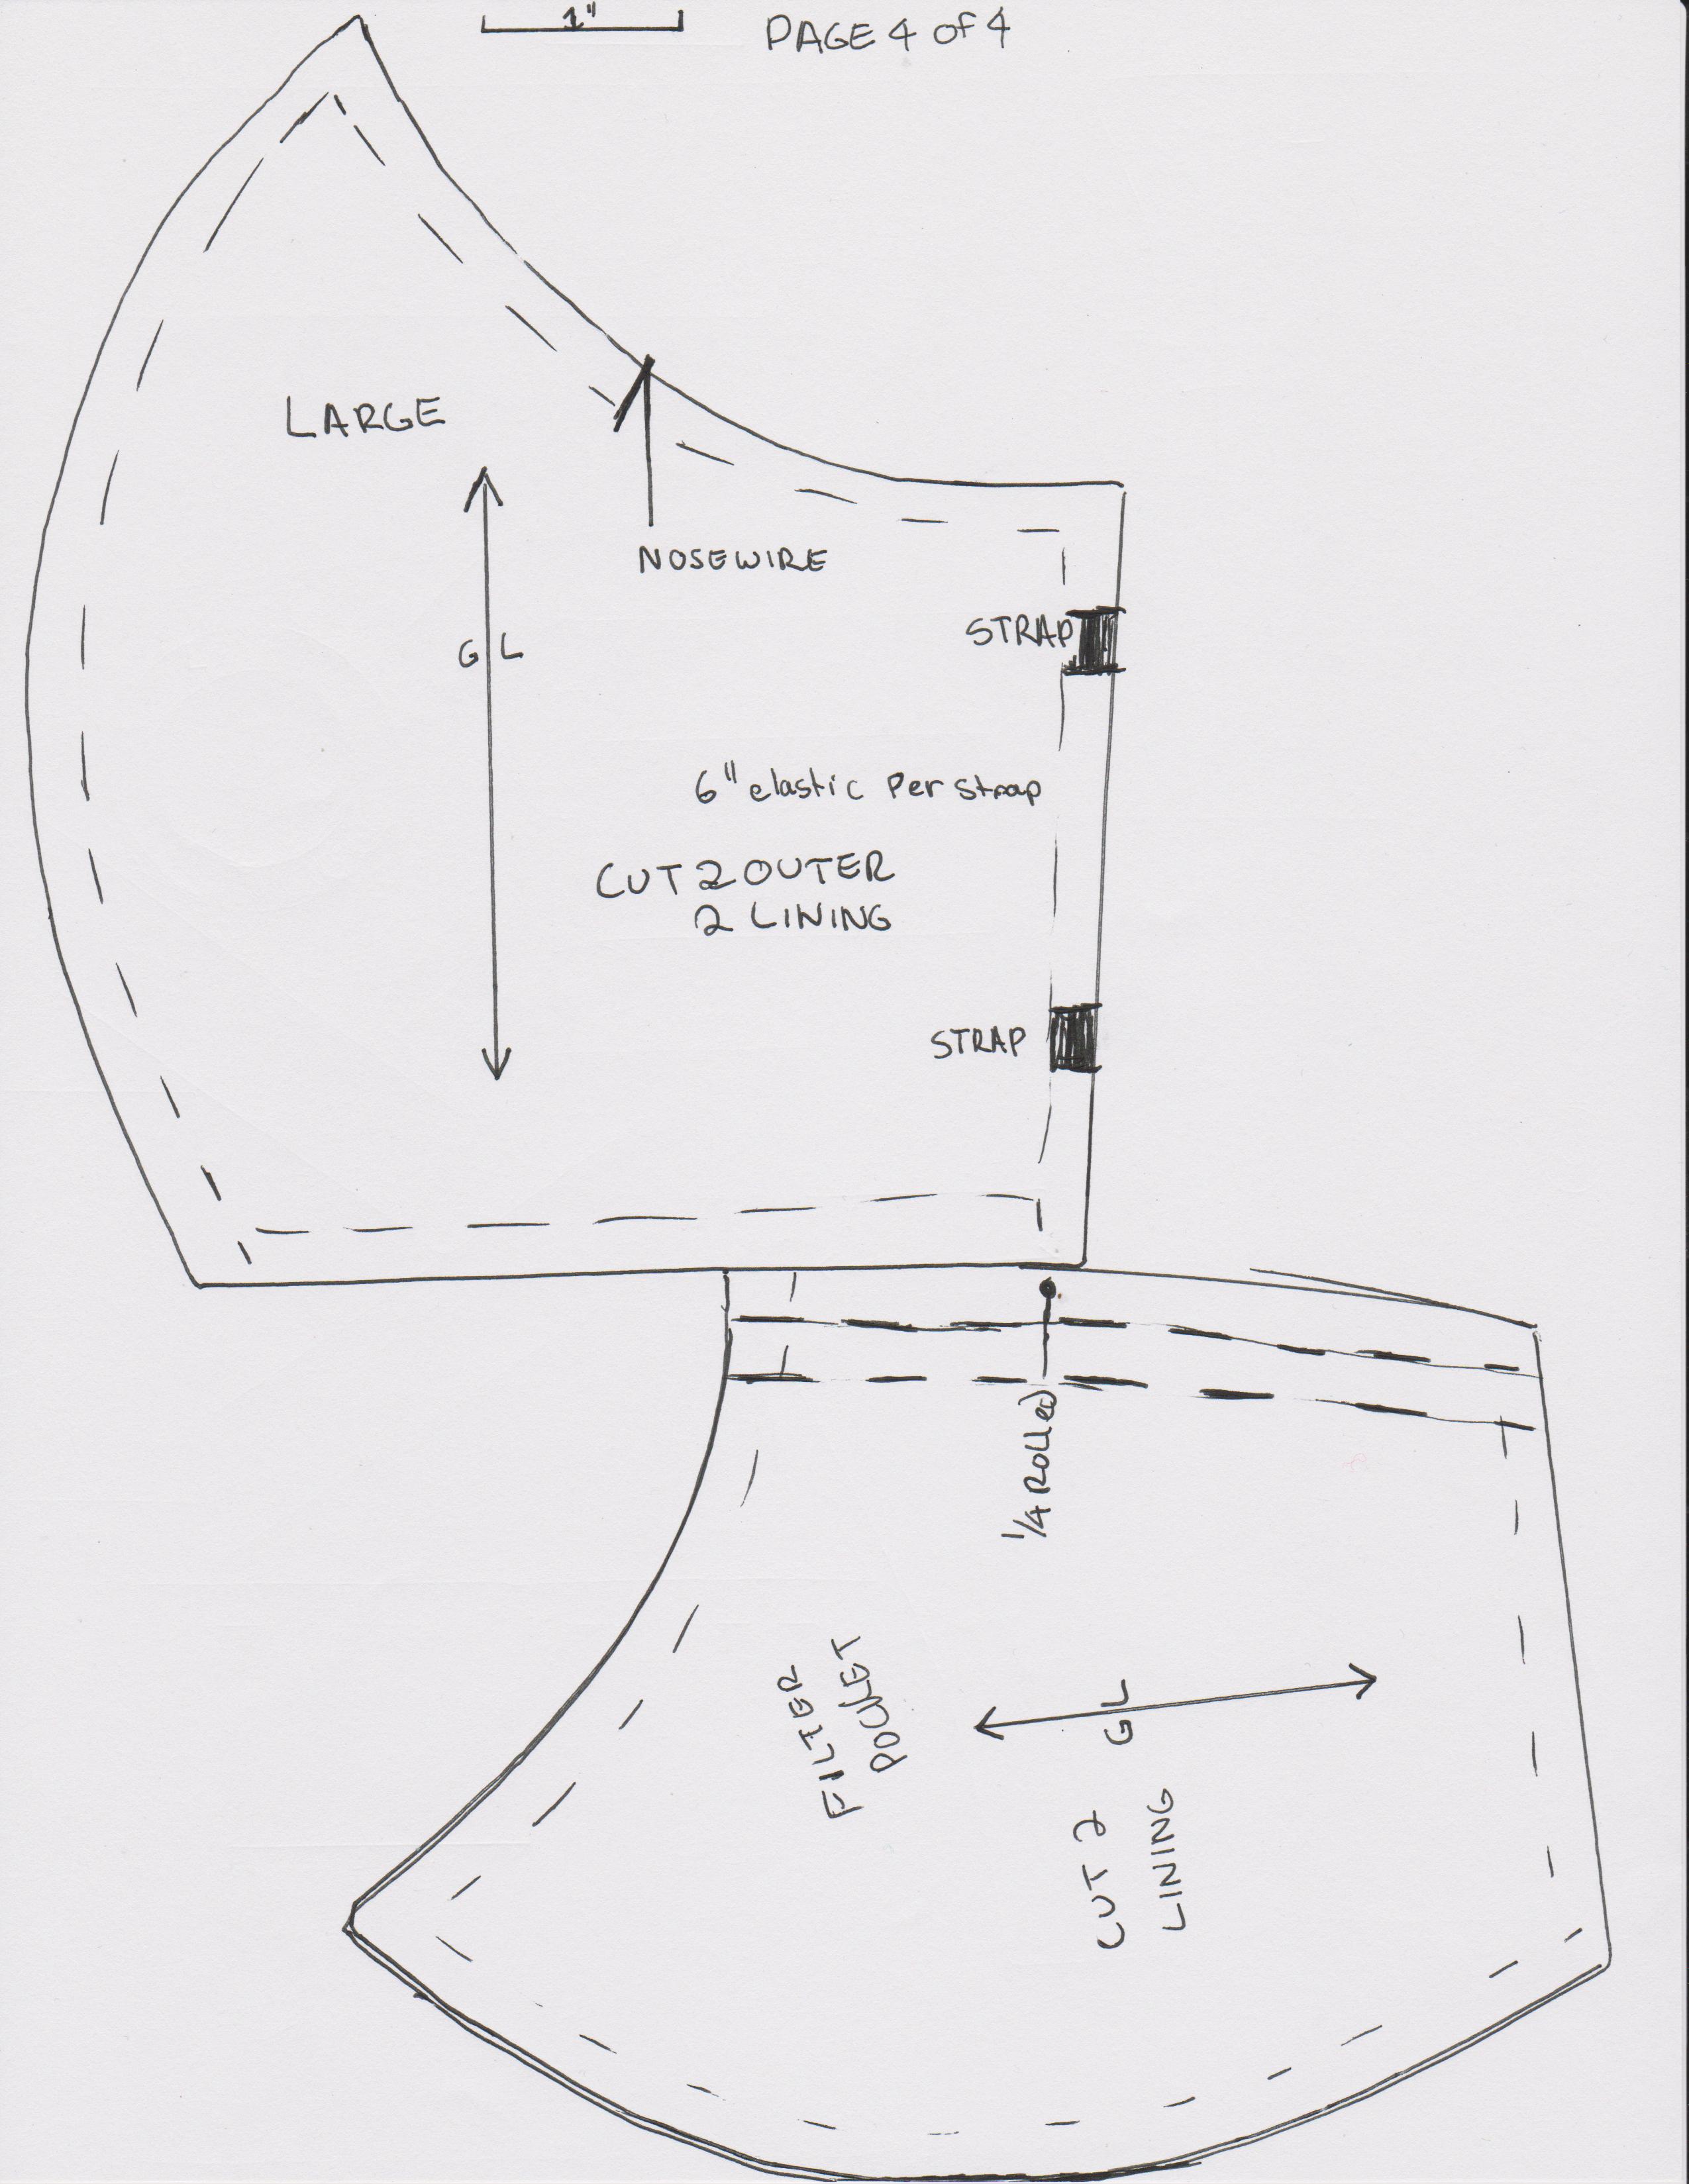 1"
PAGE 4 of 4
LARGE
NOSEWIRE
STRAP
G L
6" elastic Per strap
CUT 2 OUTER
2 LINING
STRAP
1/4 Rolled
FILTER
POCKET
GL
CUT 2
LINING